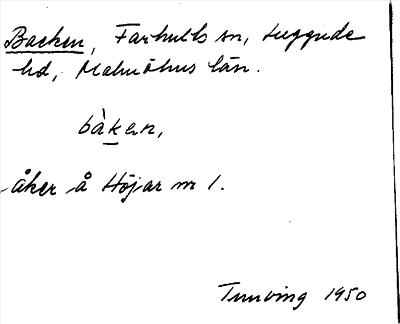 Backen, Farhults sn, Luggude
hd, Malmöhus län.
bàken,
åker å Höjar nr 1.
1950